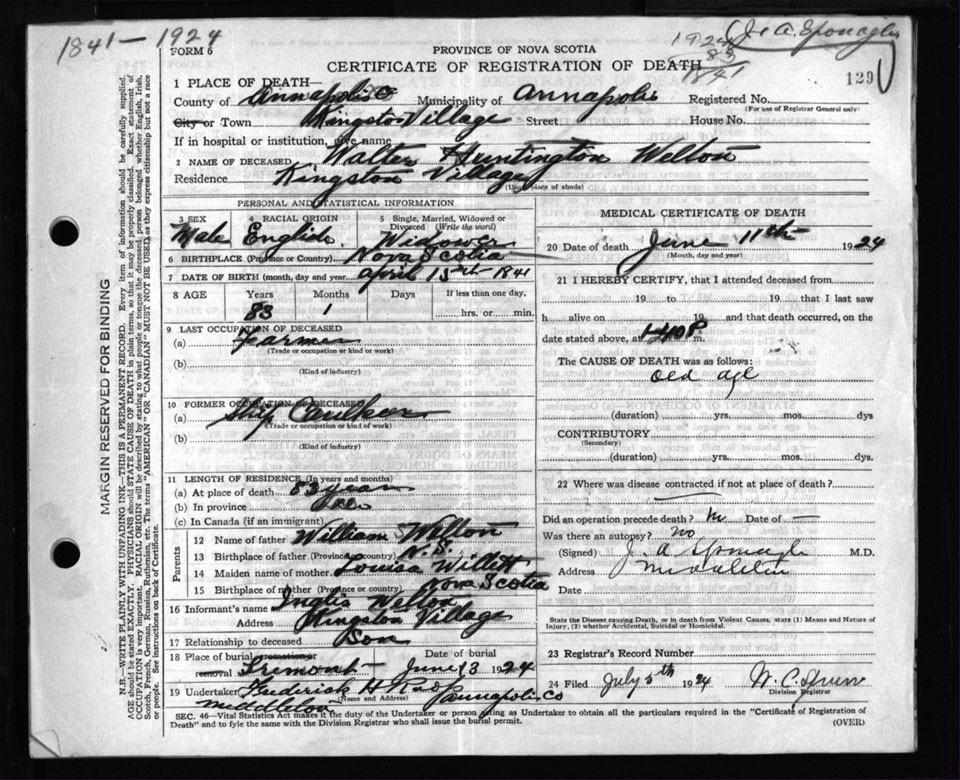 1841 - 1924
1924
83
1841
J. A. Sponagle
FORM 6
PROVINCE OF NOVA SCOTIA
CERTIFICATE OF REGISTRATION OF DEATH
129
MARGIN RESERVED FOR BINDING
N.B.—WRITE PLAINLY WITH UNFADING INK—THIS IS A PERMANENT RECORD. Every item of information should be carefully supplied.
AGE should be stated EXACTLY. PHYSICIANS should STATE CAUSE OF DEATH in plain terms, so that it may be properly classified. Exact statement of
OCCUPATION is very important. RACIAL ORIGIN will be described by stating to what people or tongue the deceased person belonged whether English, Irish,
Scotch, French, German, Russian, Ruthenian, etc. The terms "AMERICAN" OR "CANADIAN" MUST NOT BE USED, as they express citizenship but not a race
of people. See instructions on back of Certificate.
1 PLACE OF DEATH—
County of Annapolis Municipality of Annapolis Registered No.
(For use of Registrar General only)
City or Town Kingston Village Street House No.
If in hospital or institution, give name
2 NAME OF DECEASED Walter Huntington Welton
Residence Kingston Village
(Usual place of abode)
PERSONAL AND STATISTICAL INFORMATION
3 SEX Male
4 RACIAL ORIGIN English
5 Single, Married, Widowed or Divorced (Write the word) Widower
6 BIRTHPLACE (Province or Country) Nova Scotia
7 DATE OF BIRTH (month, day and year) April 15th 1841
8 AGE Years 83 Months 1 Days If less than one day, hrs. or min.
9 LAST OCCUPATION OF DECEASED
(a) Farmer
(Trade or occupation or kind or work)
(b)
(Kind of industry)
10 FORMER OCCUPATION OF DECEASED
(a) Ship Caulker
(Trade or occupation or kind of work)
(b)
(Kind of industry)
11 LENGTH OF RESIDENCE (In years and months)
(a) At place of death 83 years
(b) In province
(c) In Canada (if an immigrant)
Parents
12 Name of father William Welton
13 Birthplace of father (Province or country) N.S.
14 Maiden name of mother Louisa Willett
15 Birthplace of mother (Province or country) Nova Scotia
16 Informant's name Inglis Welton
Address Kingston Village
17 Relationship to deceased Son
18 Place of burial cremation or removal Tremont
Date of burial June 13 1924
19 Undertaker Frederick H
(Name and Address)
Middleton Annapolis Co
MEDICAL CERTIFICATE OF DEATH
20 Date of death June 11th 1924
(Month, day and year)
21 I HEREBY CERTIFY, that I attended deceased from
19 to 19 that I last saw
h alive on 19 and that death occurred, on
date stated above, at P m.
The CAUSE OF DEATH was as follows:
old age
(duration) yrs. mos. dys
CONTRIBUTORY
(Secondary)
(duration) yrs. mos. dys.
22 Where was disease contracted if not at place of death?
Did an operation precede death? no Date of —
Was there an autopsy? no
(Signed) J. A Sponagle M.D.
Address Middleton
Date
State the Disease causing Death, or in death from Violent Causes, state (1) Means and Nature of
Injury, (2) whether Accidental, Suicidal or Homicidal.
23 Registrar's Record Number
24 Filed July 5th 1924 W. C.
Division Registrar
SEC. 46—Vital Statistics Act makes it the duty of the Undertaker or person acting as Undertaker to obtain all the particulars required in the "Certificate of Registration of
Death" and to fyle the same with the Division Registrar who shall issue the burial permit.
(OVER)